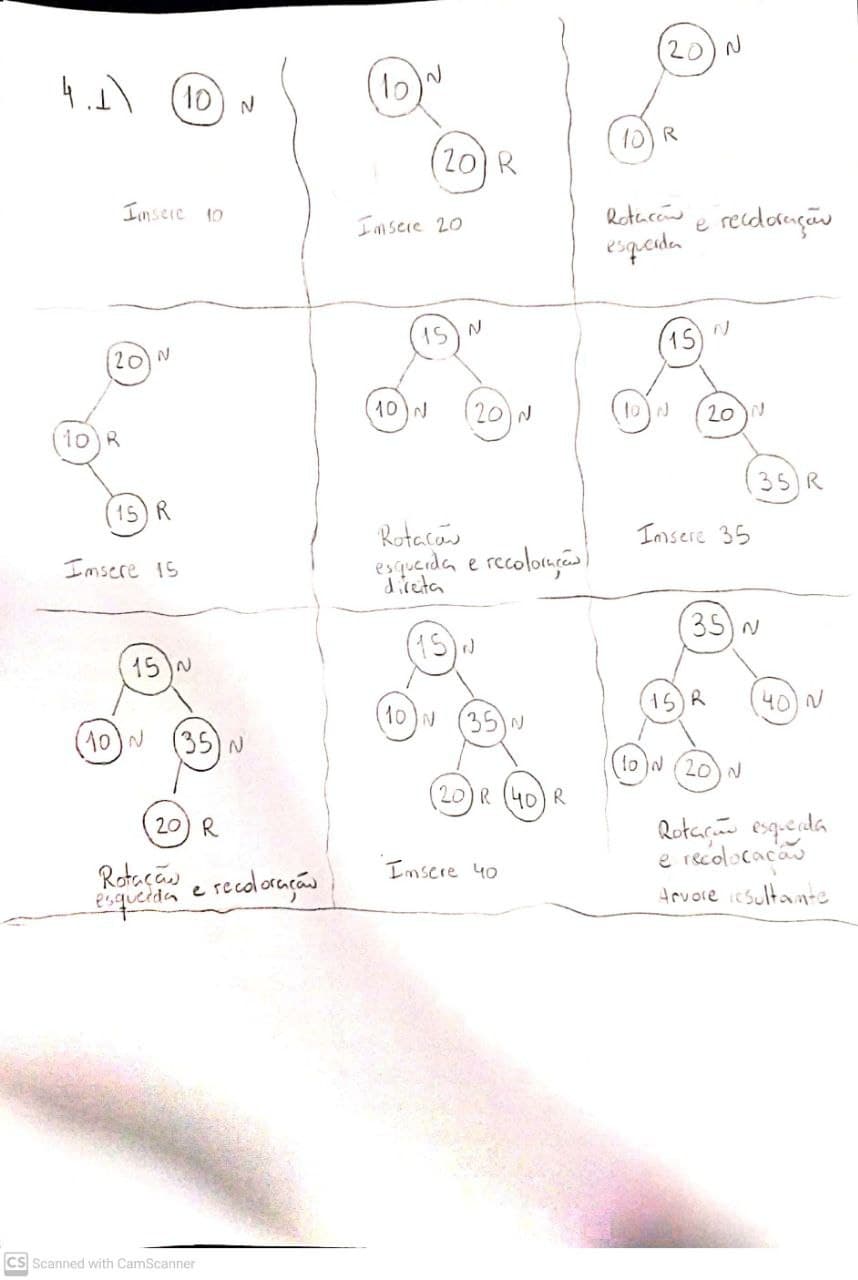 4.1) 10 N
Insere 10
10 N
20 R
Insere 20
20 N
10 R
Rotação e recoloração
esquerda
20 N
10 R
15 R
Insere 15
15 N
10 N 20 N
Rotação
esquerda e recoloração
direita
15 N
10 N 20 N
35 R
Insere 35
15 N
10 N 35 N
20 R
Rotação
esquerda e recoloração
15 N
10 N 35 N
20 R 40 R
Insere 40
35 N
15 R 40 N
10 N 20 N
Rotação esquerda
e recolocação
Arvore resultante
CS Scanned with CamScanner